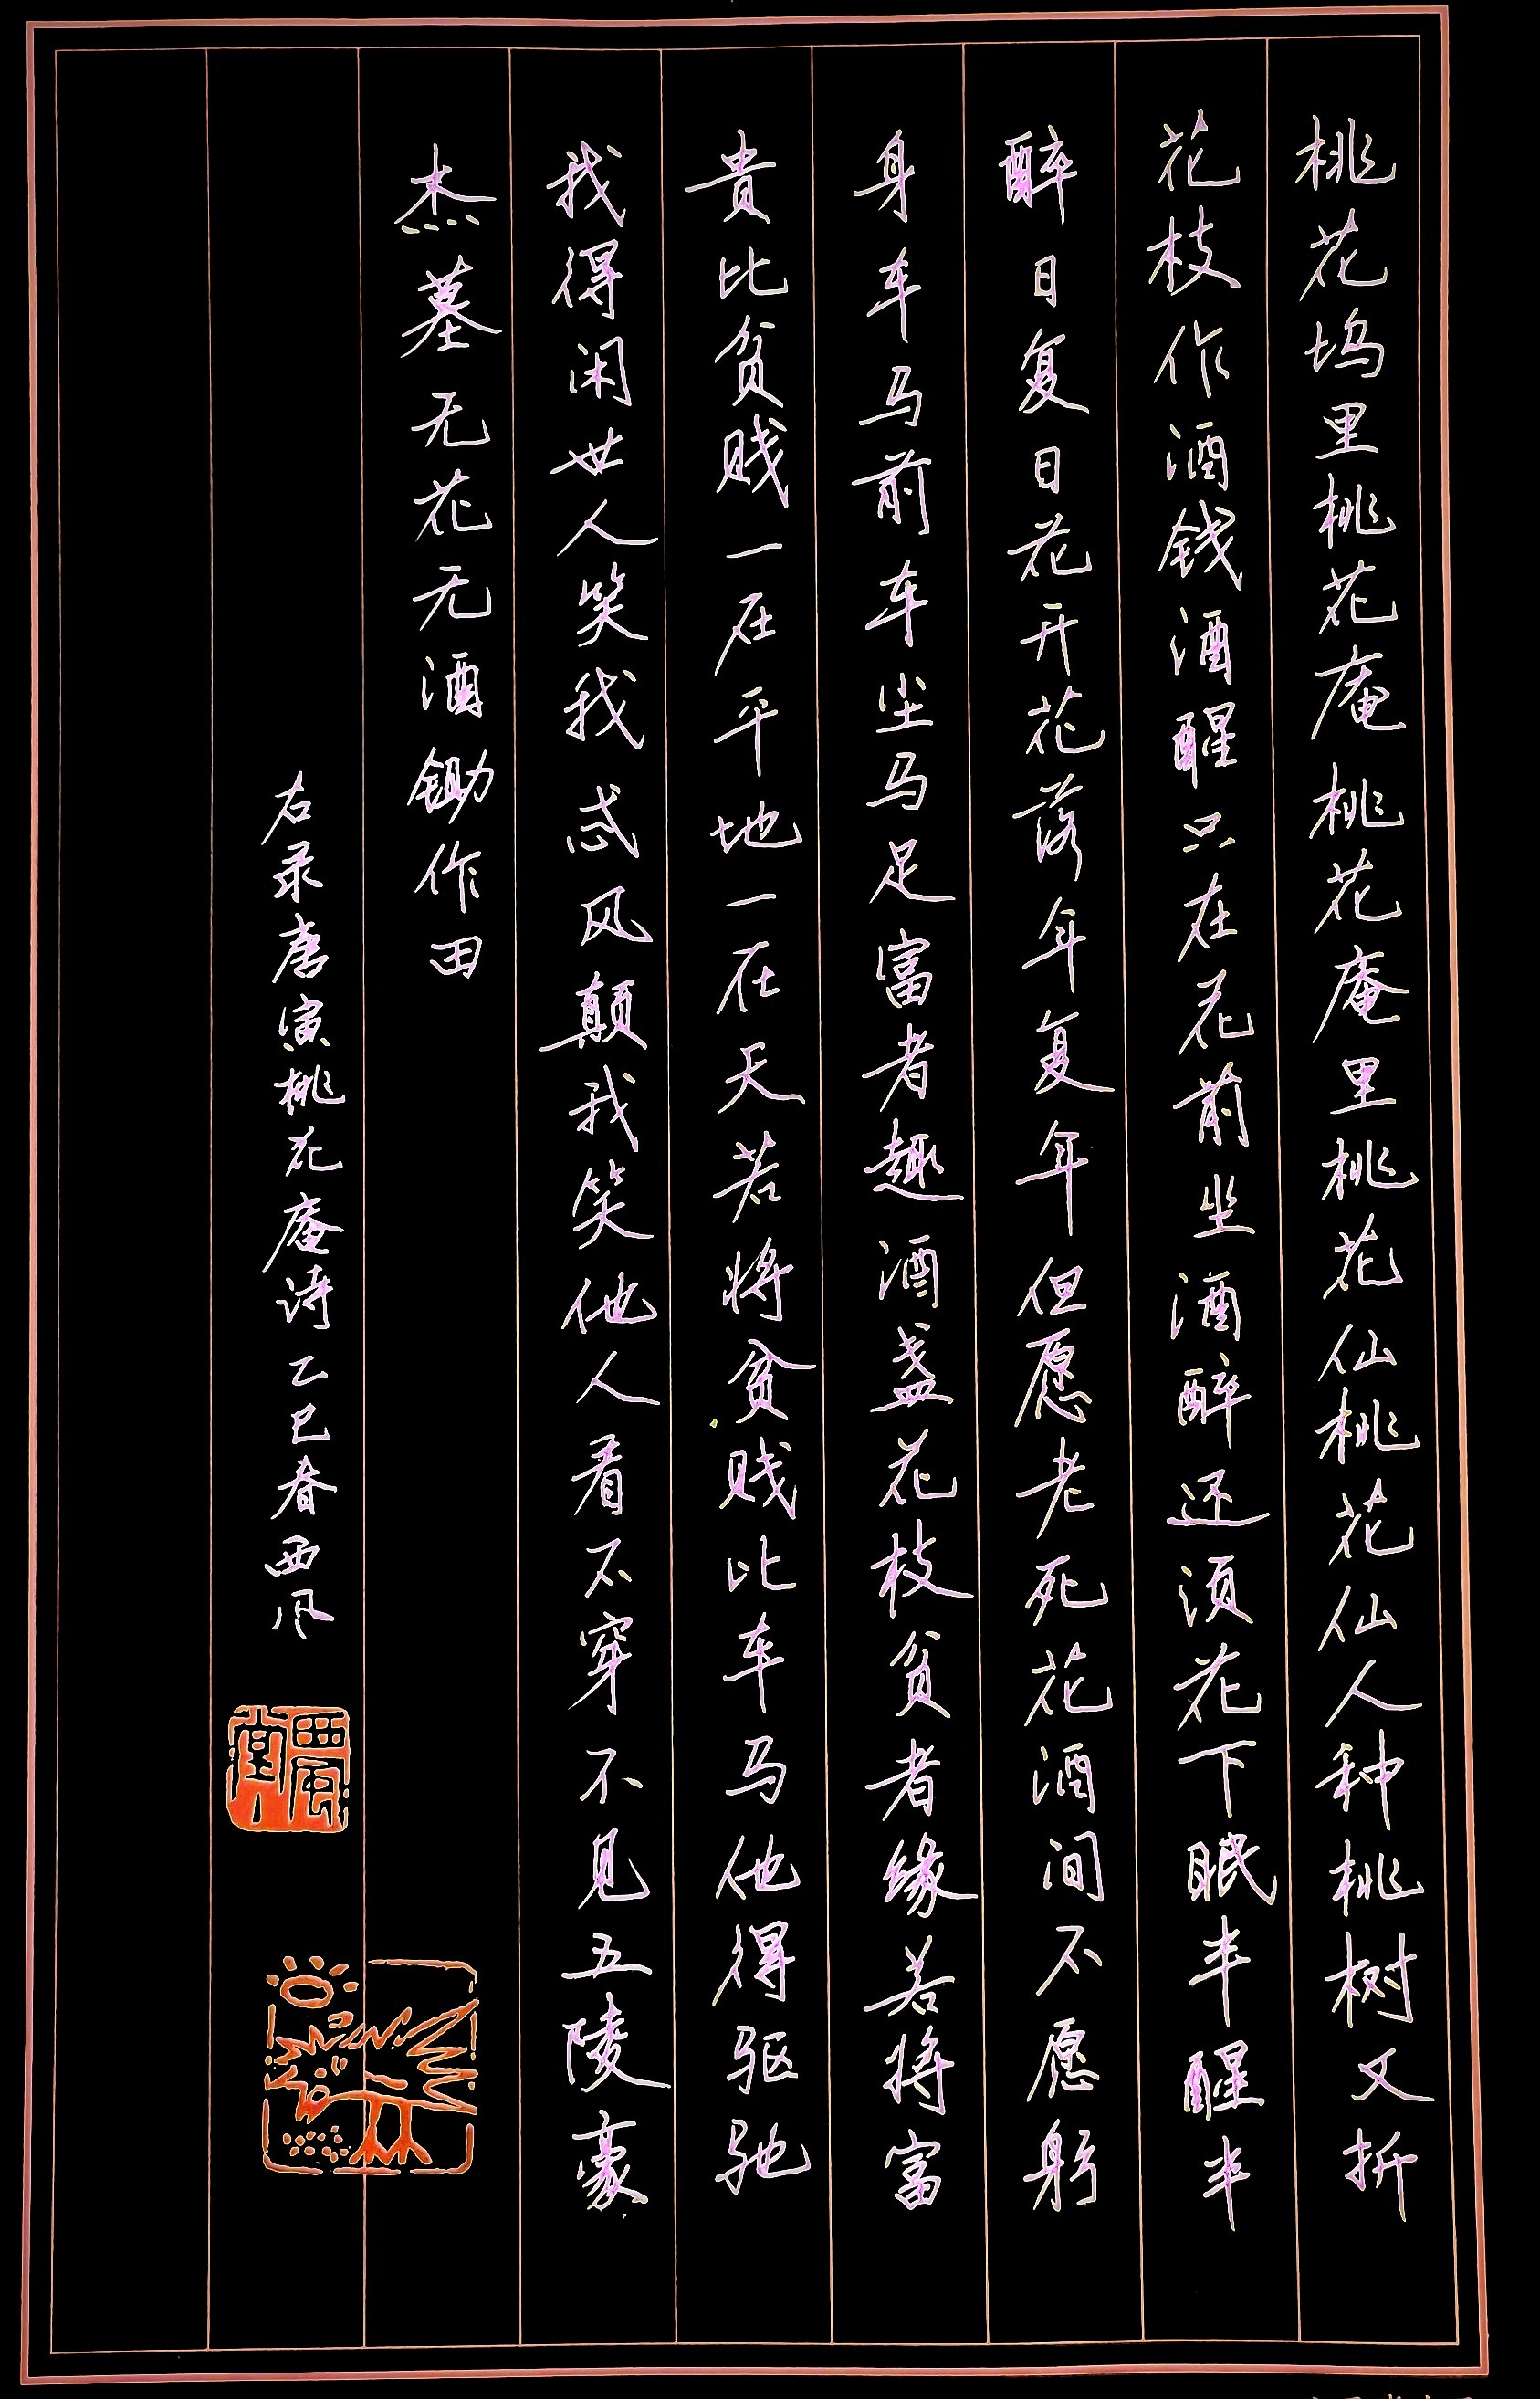 桃花坞里桃花庵桃花庵里桃花仙桃花仙人种桃树又折
花枝作酒钱酒醒只在花前坐酒醉还须花下眠半醒半
醉日复日花开花落年复年但愿老死花酒间不愿躬
身车马前车尘马足富者趣酒盏花枝贫者缘若将富
贵比贫贱一在平地一在天若将贫贱比车马他得驱驰
我得闲世人笑我忒风颠我笑他人看不穿不见五陵豪
杰墓无花无酒锄作田
右录唐寅桃花庵诗乙巳春西风